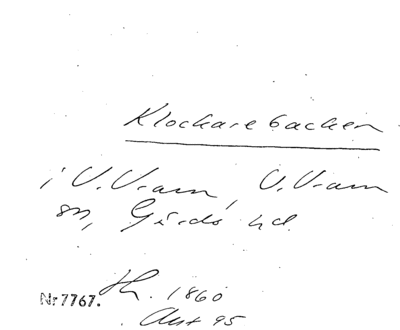 Klockarebacken
i V. Vram, V. Vram
sn, Gärds hd.
Nr 7767. Hk. 1860
Akt 95